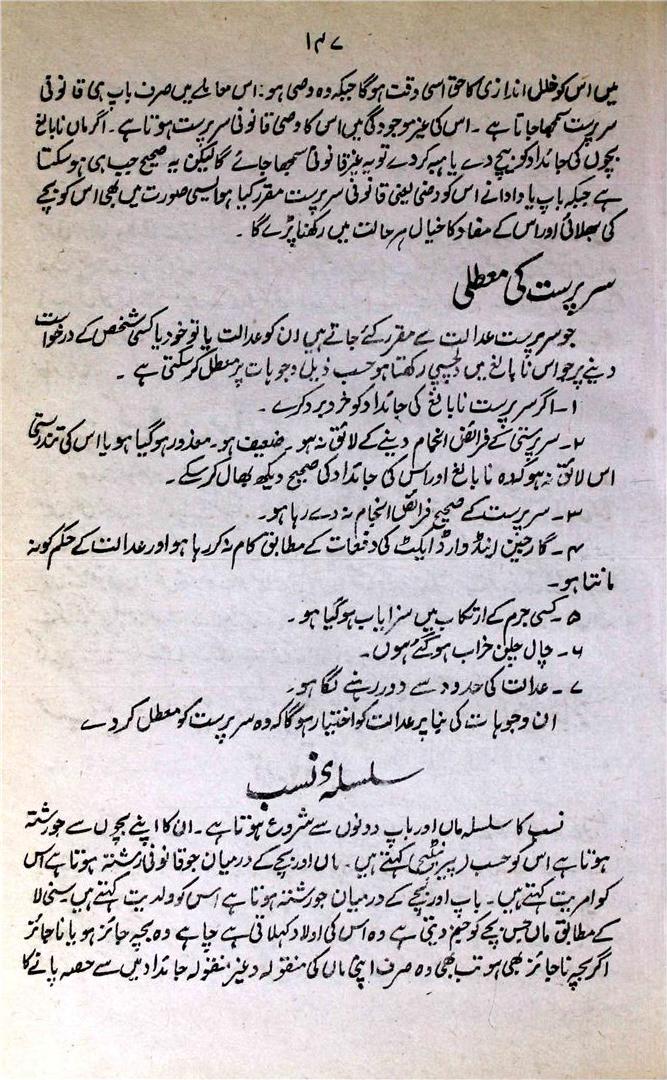 ۱۴۷
میں اس کو خلل اندازی کا حق اسی وقت ہو گا جبکہ وہ وصی ہو: اس معاملے میں صرف باپ ہی قانونی
سرپرست سمجھا جاتا ہے۔ اس کی غیر موجودگی میں اس کا وصی قانونی سرپرست ہوتا ہے۔ اگر ماں نابالغ
بچوں کی جائداد کو بیچ دے یا ہبہ کر دے تو یہ غیر قانونی سمجھا جائے گا لیکن یہ صحیح جب ہی ہو سکتا
ہے جبکہ باپ یا دادا نے اس کو وصی یعنی قانونی سرپرست مقرر کیا ہو ایسی صورت میں بھی اس کو بچے
کی بھلائی اور اس کے مفاد کا خیال ہر حالت میں رکھنا پڑے گا۔
سرپرست کی معطلی
جو سرپرست عدالت سے مقرر کئے جاتے ہیں ان کو عدالت یا تو خود یا کسی شخص کے درخواست
دینے پر جو اس نابالغ میں دلچسپی رکھتا ہو حسب ذیل وجوہات پر معطل کر سکتی ہے۔
۱۔ اگر سرپرست نابالغ کی جائداد کو خرد برد کرے۔
۲۔ سرپرستی کے فرائض انجام دینے کے لائق نہ ہو۔ ضعیف ہو۔ معذور ہو گیا ہو یا اس کی تندرستی
اس لائق نہ ہو کہ وہ نابالغ اور اس کی جائداد کی صحیح دیکھ بھال کر سکے۔
۳۔ سرپرست کے صحیح فرائض انجام نہ دے رہا ہو۔
۴۔ گارجین اینڈ وارڈ ایکٹ کی دفعات کے مطابق کام نہ کر رہا ہو اور عدالت کے حکم کو نہ
مانتا ہو۔
۵۔ کسی جرم کے ارتکاب میں سزایاب ہو گیا ہو۔
۶۔ چال چلن خراب ہو گئے ہوں۔
۷۔ عدالت کی حدود سے دور رہنے لگا ہو۔
ان وجوہات کی بنا پر عدالت کو اختیار ہو گا کہ وہ سرپرست کو معطل کر دے
سلسلۂ نسب
نسب کا سلسلہ ماں اور باپ دونوں سے شروع ہوتا ہے۔ ان کا اپنے بچوں سے جو رشتہ
ہوتا ہے اس کو حسب (پیرنٹیج) کہتے ہیں۔ ماں اور بچے کے درمیان جو قانونی رشتہ ہوتا ہے اس
کو امریت کہتے ہیں۔ باپ اور بچے کے درمیان جو رشتہ ہوتا ہے اس کو ولدیت کہتے ہیں سنی لا
کے مطابق ماں جس بچے کو جنم دیتی ہے وہ اس کی اولاد کہلاتی ہے چاہے وہ بچہ جائز ہو یا ناجائز
اگر بچہ ناجائز بھی ہو تب بھی وہ صرف اپنی ماں کی منقولہ و غیر منقولہ جائداد میں سے حصہ پانے کا